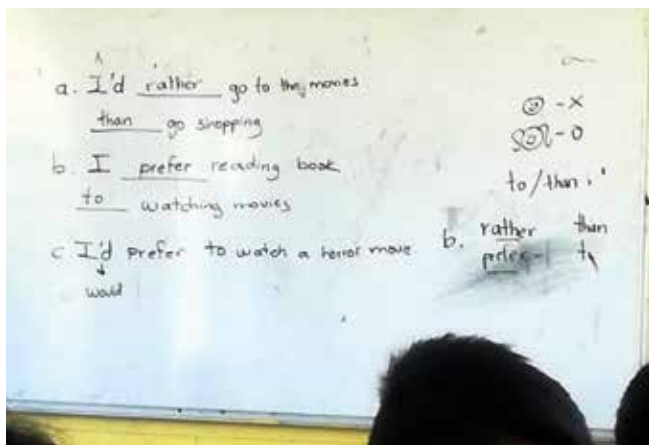 a. I'd rather go to the movies
than go shopping
b. I prefer reading book
to watching movies
c I'd prefer to watch a horror move
would
- X
- O
to/than
b. rather than
prefer - to